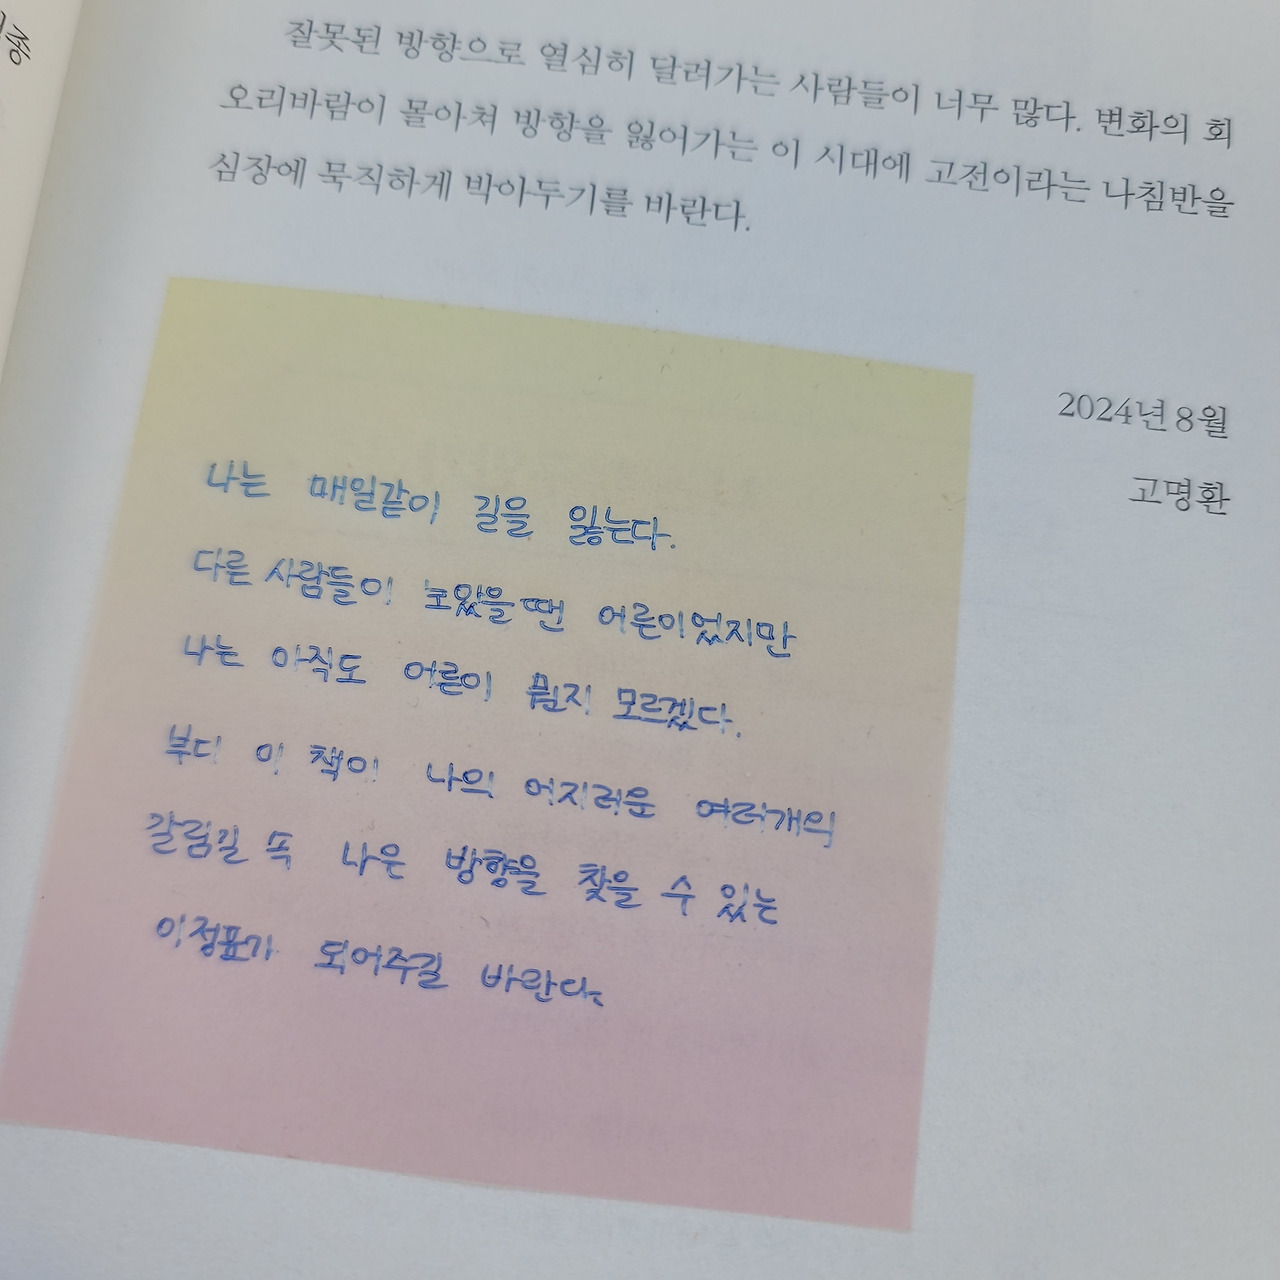 잘못된 방향으로 열심히 달려가는 사람들이 너무 많다. 변화의 회
오리바람이 몰아쳐 방향을 잃어가는 이 시대에 고전이라는 나침반을
심장에 묵직하게 박아두기를 바란다.
2024년 8월
고명환
나는 매일같이 길을 잃는다.
다른 사람들이 보았을땐 어른이었지만
나는 아직도 어른이 뭔지 모르겠다.
부디 이 책이 나의 어지러운 여러개의
갈림길 속 나은 방향을 찾을 수 있는
이정표가 되어주길 바란다.